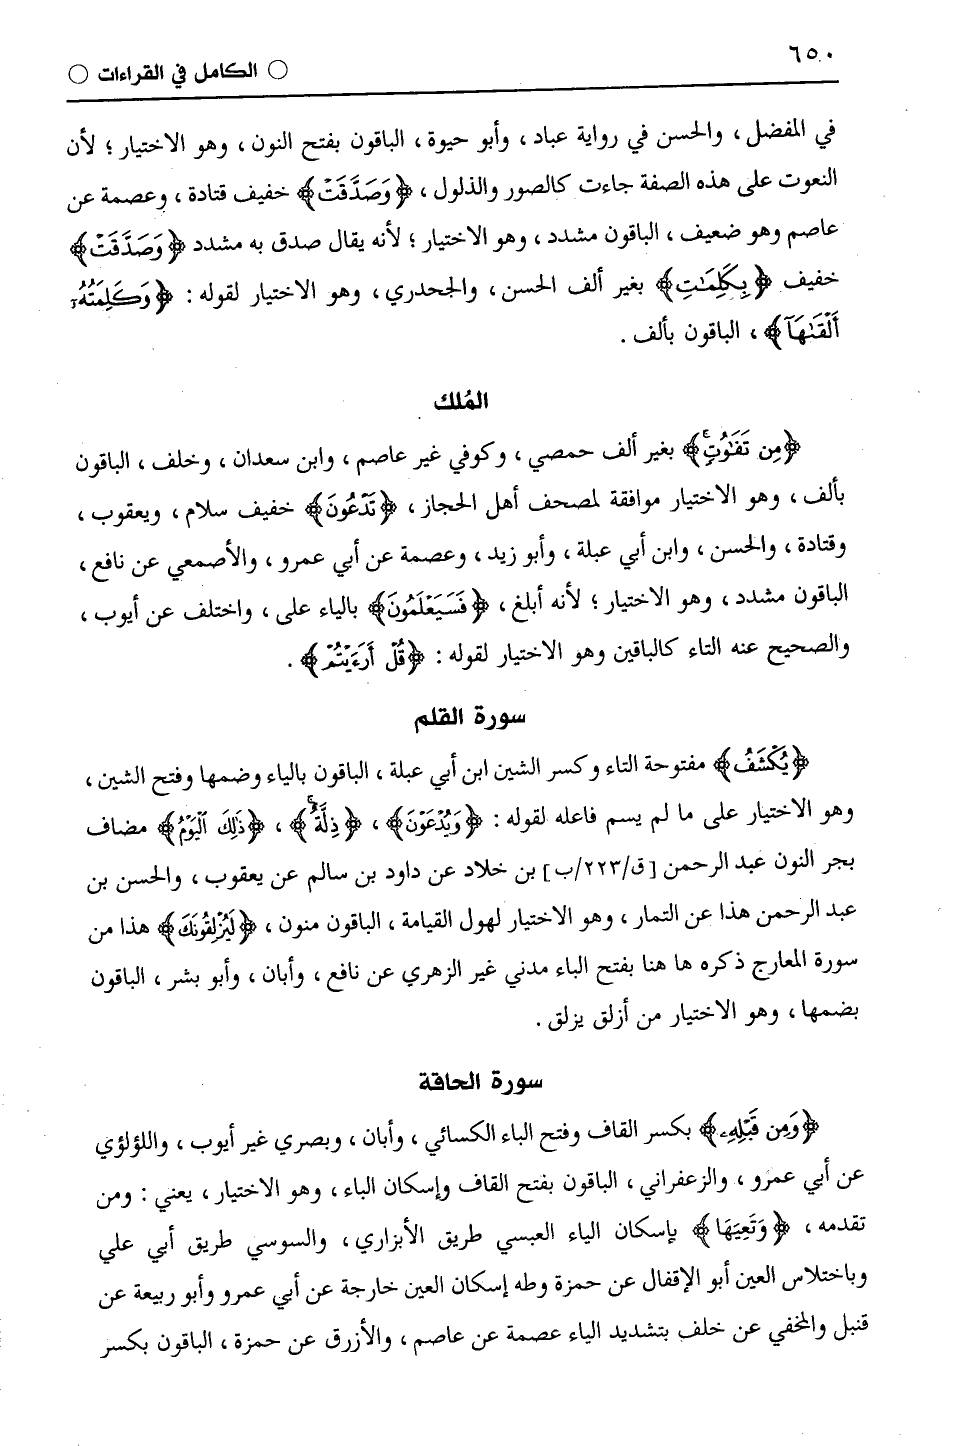 ٦٥٠
○ الكامل في القراءات ○
في المفضل ، والحسن في رواية عباد ، وأبو حيوة ، الباقون بفتح النون ، وهو الاختيار ؛ لأن
النعوت على هذه الصفة جاءت كالصور والذلول ، ﴿وَصَدَّقَتْ﴾ خفيف قتادة ، وعصمة عن
عاصم وهو ضعيف ، الباقون مشدد ، وهو الاختيار ؛ لأنه يقال صدق به مشدد ﴿وَصَدَّقَتْ﴾
خفيف ﴿بِكَلِمَٰتِ﴾ بغير ألف الحسن ، والجحدري ، وهو الاختيار لقوله : ﴿وَكَلِمَتُهُۥٓ
أَلْقَىٰهَآ﴾ ، الباقون بألف .
المُلك
﴿مِن تَفَٰوُتٍ﴾ بغير ألف حمصي ، وكوفي غير عاصم ، وابن سعدان ، وخلف ، الباقون
بألف ، وهو الاختيار موافقة لمصحف أهل الحجاز ، ﴿تَدَّعُونَ﴾ خفيف سلام ، ويعقوب ،
وقتادة ، والحسن ، وابن أبي عبلة ، وأبو زيد ، وعصمة عن أبي عمرو ، والأصمعي عن نافع ،
الباقون مشدد ، وهو الاختيار ؛ لأنه أبلغ ، ﴿فَسَيَعْلَمُونَ﴾ بالياء على ، واختلف عن أيوب ،
والصحيح عنه التاء كالباقين وهو الاختيار لقوله : ﴿قُلْ أَرَءَيْتُمْ﴾ .
سورة القلم
﴿يُكْشَفُ﴾ مفتوحة التاء وكسر الشين ابن أبي عبلة ، الباقون بالياء وضمها وفتح الشين ،
وهو الاختيار على ما لم يسم فاعله لقوله : ﴿وَيُدْعَوْنَ﴾ ، ﴿ذِلَّةٌ﴾ ، ﴿ذَٰلِكَ الْيَوْمُ﴾ مضاف
بجر النون عبد الرحمن [ق/٢٢٣/ب] بن خلاد عن داود بن سالم عن يعقوب ، والحسن بن
عبد الرحمن هذا عن التمار ، وهو الاختيار لهول القيامة ، الباقون منون ، ﴿لَيُزْلِقُونَكَ﴾ هذا من
سورة المعارج ذكره ها هنا بفتح الباء مدني غير الزهري عن نافع ، وأبان ، وأبو بشر ، الباقون
بضمها ، وهو الاختيار من أزلق يزلق .
سورة الحاقة
﴿وَمِن قَبْلِهِۦ﴾ بكسر القاف وفتح الباء الكسائي ، وأبان ، وبصري غير أيوب ، واللؤلؤي
عن أبي عمرو ، والزعفراني ، الباقون بفتح القاف وإسكان الباء ، وهو الاختيار ، يعني : ومن
تقدمه ، ﴿وَتَعِيَهَا﴾ بإسكان الياء العبسي طريق الأبزاري ، والسوسي طريق أبي علي
وباختلاس العين أبو الإقفال عن حمزة وطه إسكان العين خارجة عن أبي عمرو وأبو ربيعة عن
قنبل والمخفي عن خلف بتشديد الياء عصمة عن عاصم ، والأزرق عن حمزة ، الباقون بكسر